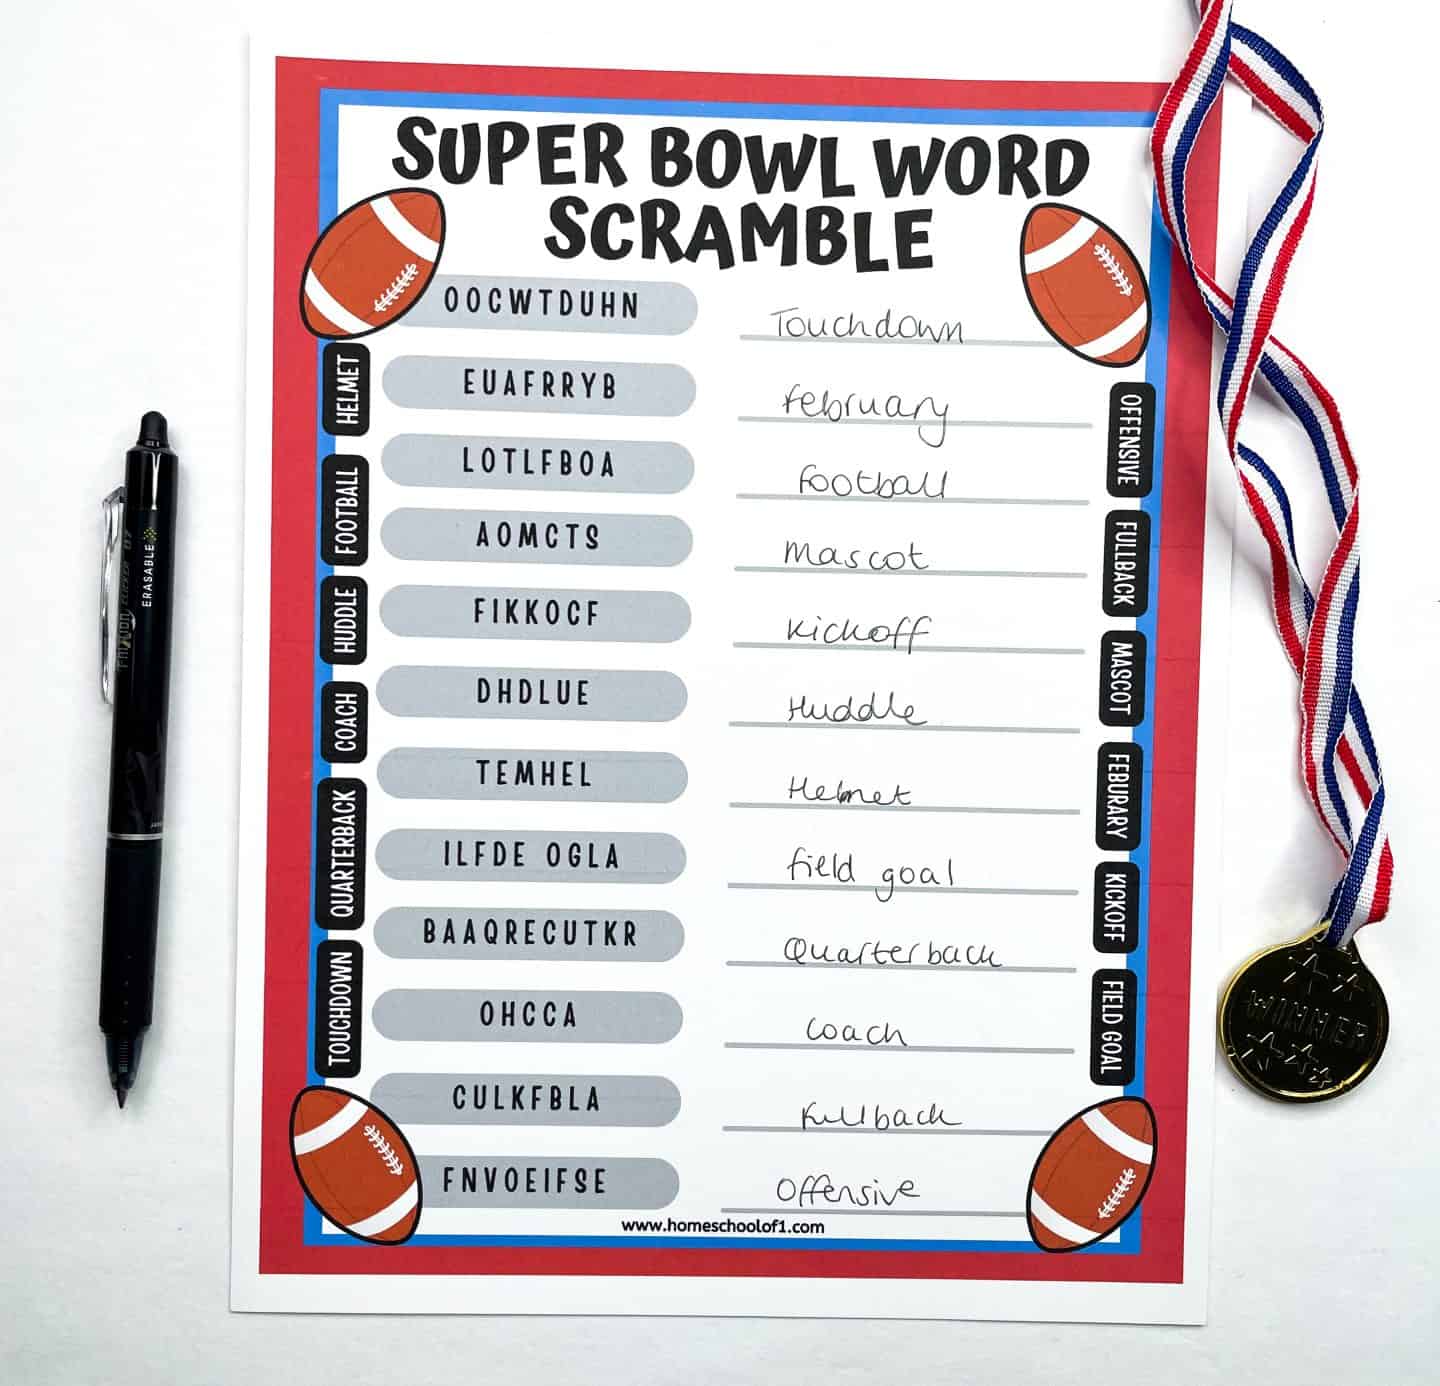 SUPER BOWL WORD
SCRAMBLE
OOCWTDUHN
Touchdown
EUAFRRYB
february
LOTLFBOA
football
AOMCTS
mascot
FIKKOCF
kickoff
DHDLUE
Huddle
TEMHEL
Helmet
ILFDE OGLA
field goal
BAAQRECUTKR
Quarterback
OHCCA
coach
CULKFBLA
fullback
FNVOEIFSE
Offensive
HELMET
FOOTBALL
HUDDLE
COACH
QUARTERBACK
TOUCHDOWN
OFFENSIVE
FULLBACK
MASCOT
FEBURARY
KICKOFF
FIELD GOAL
www.homeschoolof1.com
ERASABLE
FriXion CLICKER 07
WINNER